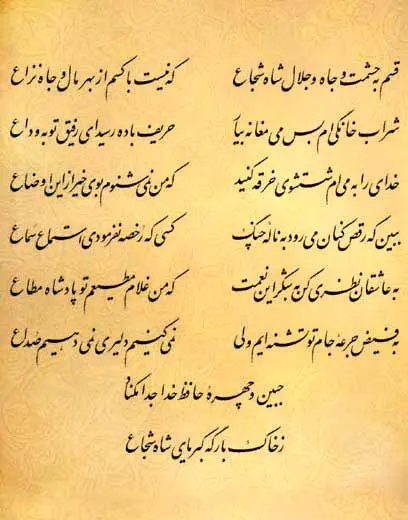 قسم به حشمت و جاه و جلال شاه شجاع که نیست با کسم از بهر مال و جاه نزاع
شراب خانگی‌ام بس می مغانه بیار حریف باده رسید ای رفیق توبه وداع
خدای را به می‌ام شستشوی خرقه کنید که من نمی‌شنوم بوی خیر از این اوضاع
ببین که رقص کنان می‌رود به ناله چنگ کسی که رخصه نفرمودی استماع سماع
به عاشقان نظری کن به شکر این نعمت که من غلام مطیعم تو پادشاه مطاع
به فیض جرعه جام تو تشنه‌ایم ولی نمی‌کنیم دلیری نمی‌دهیم صداع
جبین و چهره حافظ خدا جدا مکناد
ز خاک بارگه کبریای شاه شجاع